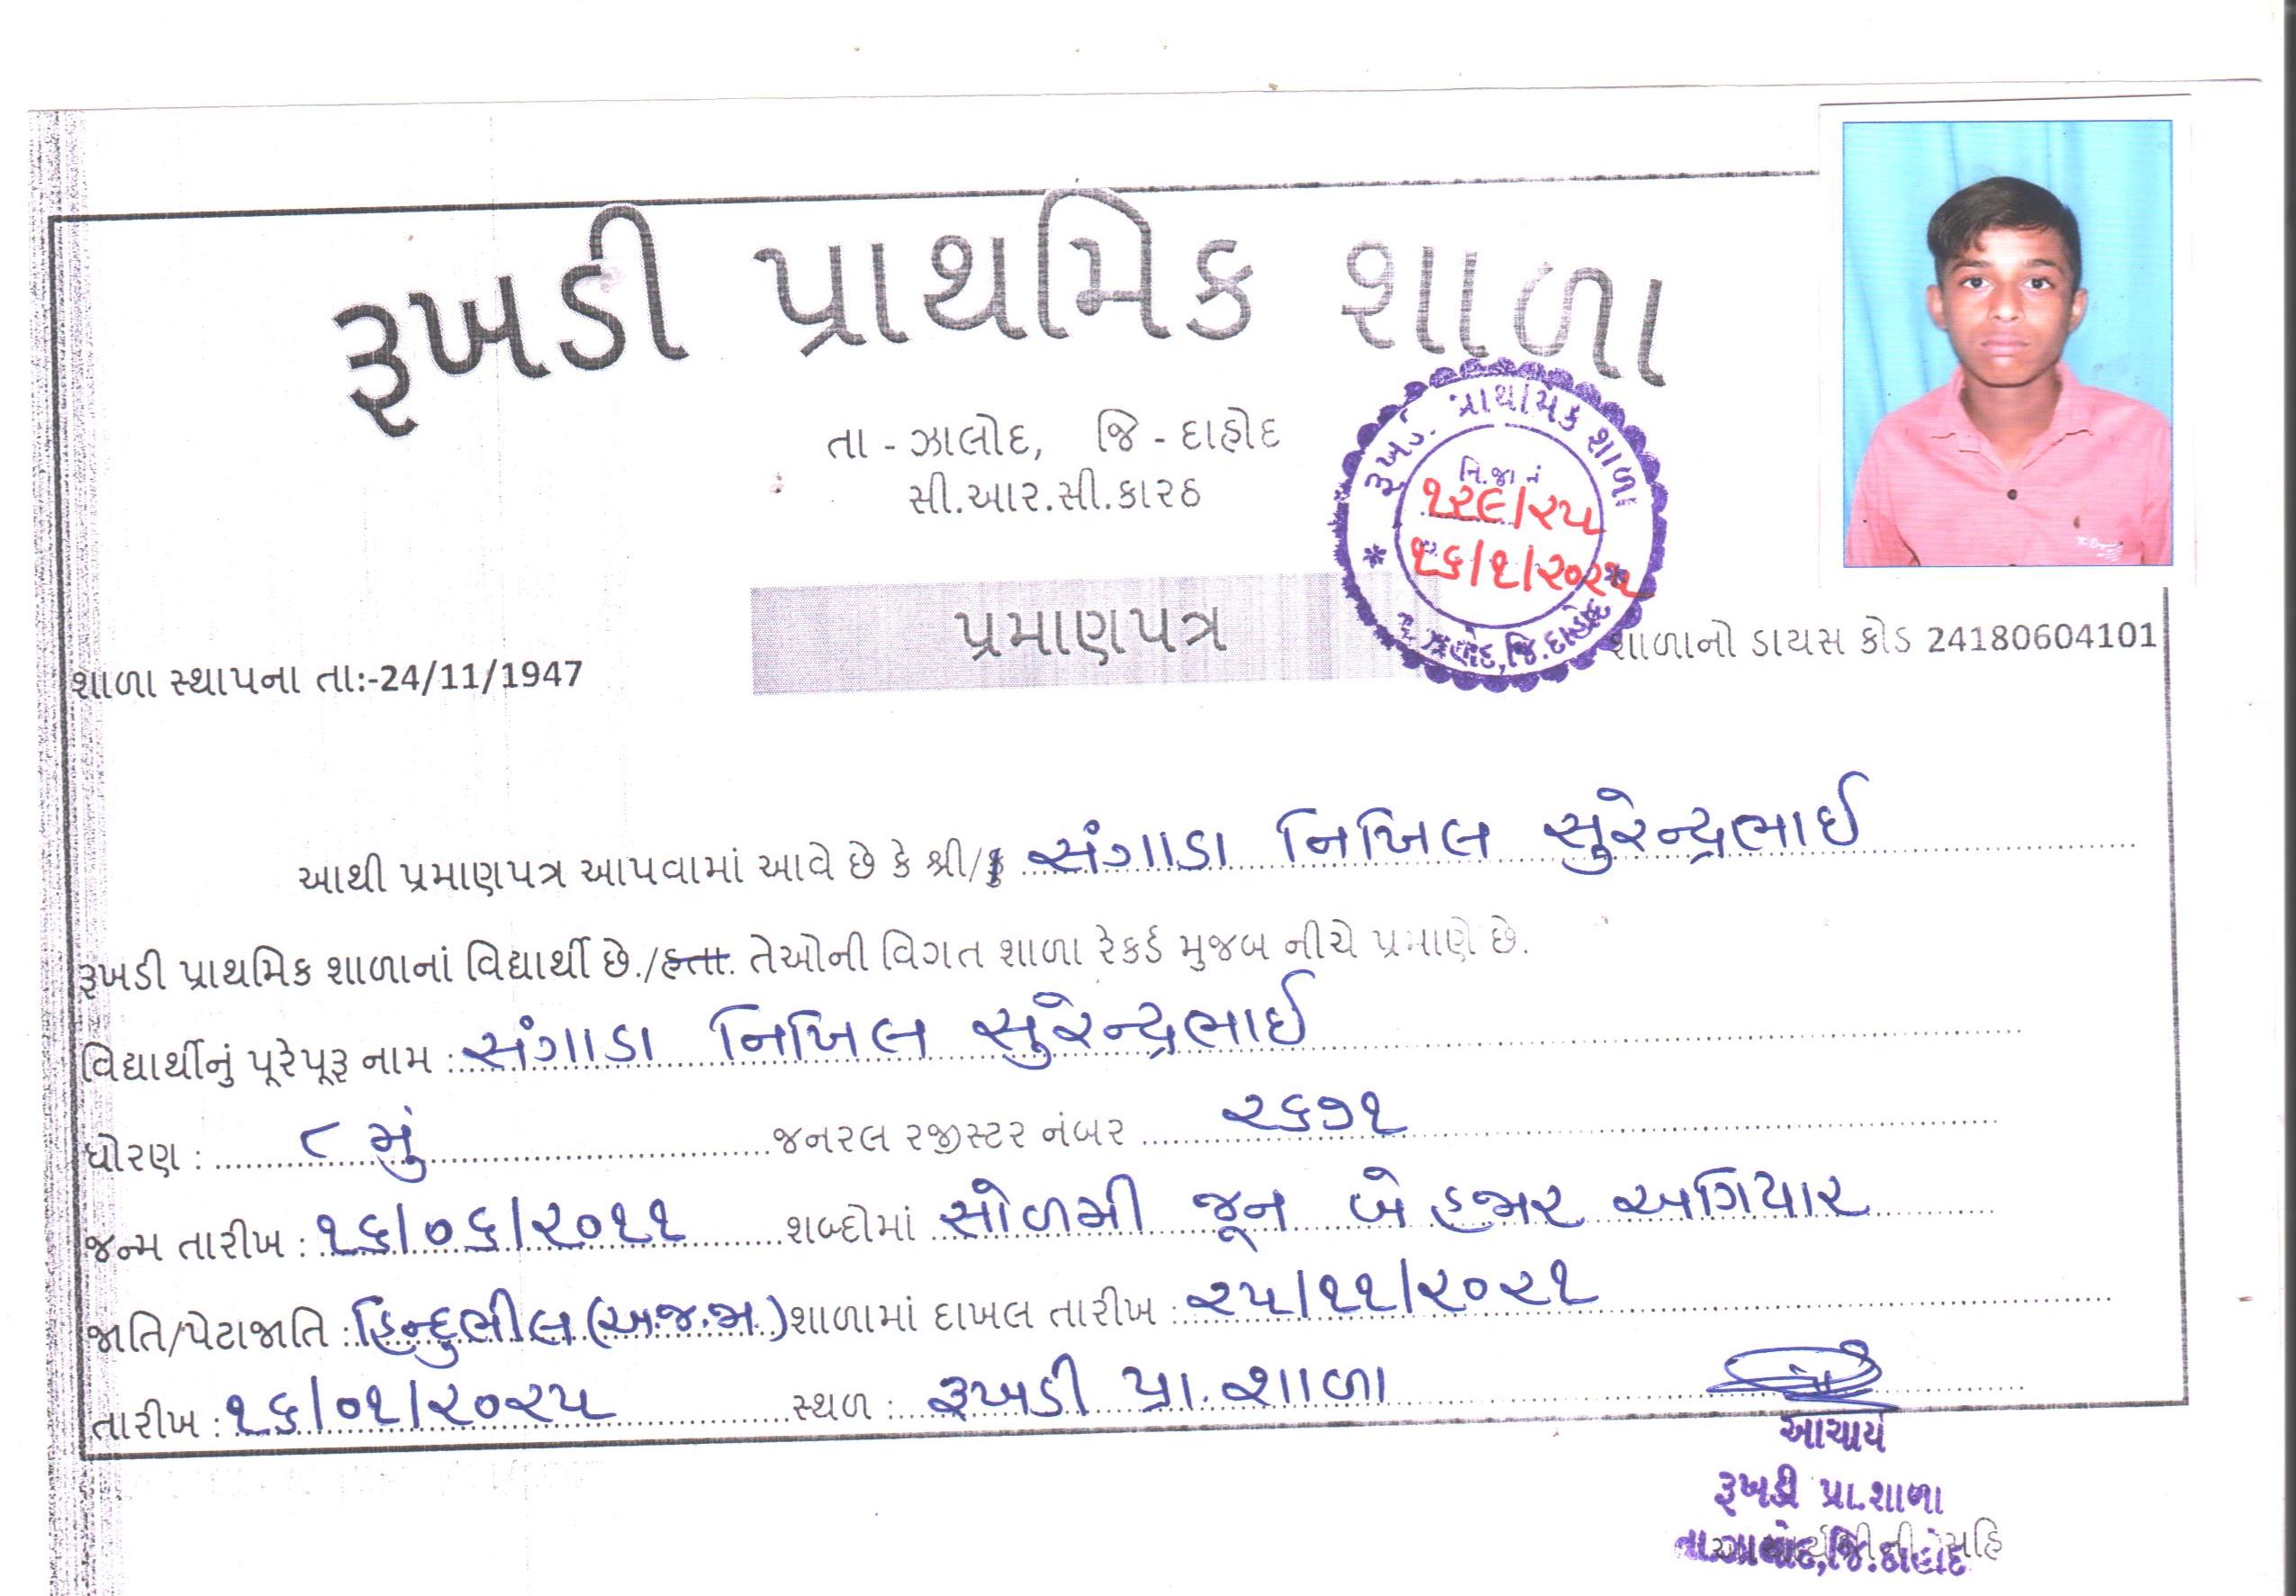 રૂખડી પ્રાથમિક શાળા
તા - ઝાલોદ, જિ - દાહોદ
સી.આર.સી.કારઠ
રૂખડી પ્રાથમિક શાળા
નિ.જા નં
૧૨૯/૨૫
૧૬/૧/૨૦૨૫
જિ.દાહોદ
પ્રમાણપત્ર
શાળાનો ડાયસ કોડ 24180604101
શાળા સ્થાપના તા:-24/11/1947
આથી પ્રમાણપત્ર આપવામાં આવે છે કે શ્રી/કુ સંગાડા નિખિલ સુરેન્દ્રભાઈ
રૂખડી પ્રાથમિક શાળાનાં વિદ્યાર્થી છે./હતા. તેઓની વિગત શાળા રેકર્ડ મુજબ નીચે પ્રમાણે છે.
વિદ્યાર્થીનું પૂરેપૂરૂ નામ : સંગાડા નિખિલ સુરેન્દ્રભાઈ
ધોરણ : ૮ મું જનરલ રજીસ્ટર નંબર ૨૬૭૧
જન્મ તારીખ : ૧૬/૦૬/૨૦૧૧ શબ્દોમાં સોળમી જૂન બે હજાર અગિયાર
જાતિ/પેટાજાતિ : હિન્દુભીલ (અ.જ.જા.) શાળામાં દાખલ તારીખ : ૨૫/૧૧/૨૦૨૧
તારીખ : ૧૬/૦૧/૨૦૨૫ સ્થળ : રૂખડી પ્રા.શાળા
આચાર્ય
રૂખડી પ્રા.શાળા
તા.ઝાલોદ,જિ.દાહોદ
સહિ